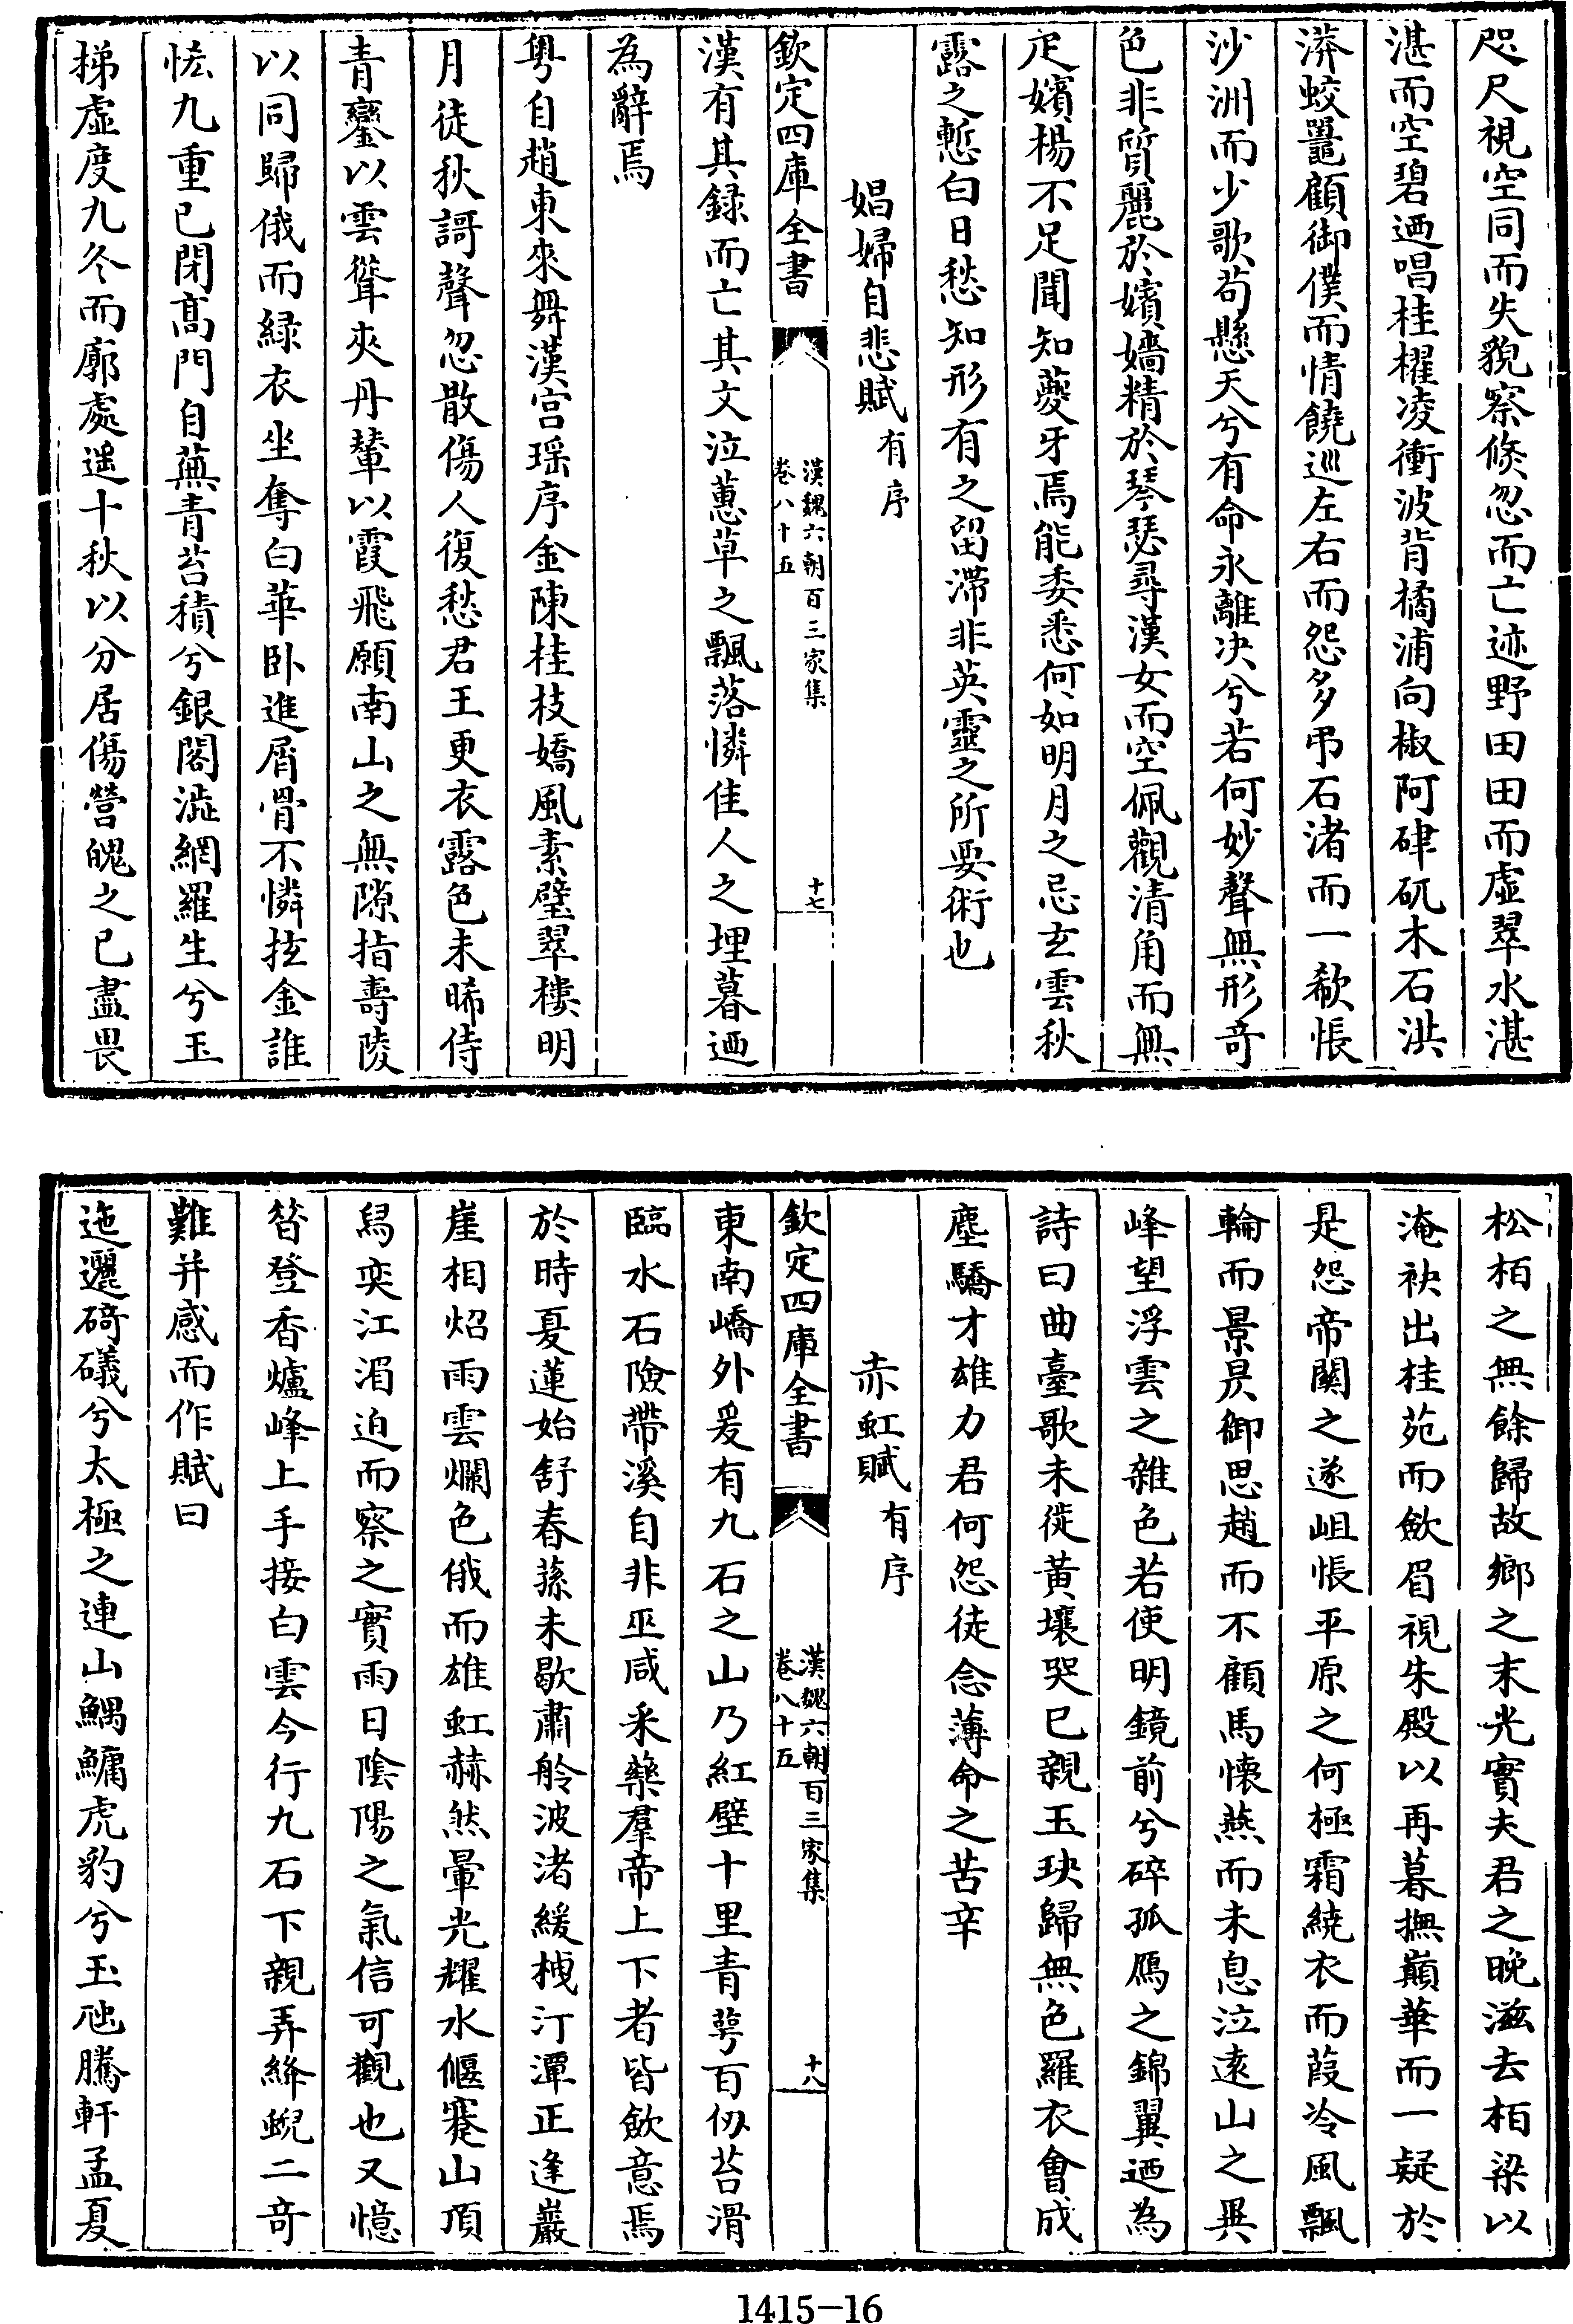 咫尺視空同而失貌察倐忽而亡迹野田田而虚翠水湛
湛而空碧廼唱桂櫂凌衝波背橘浦向椒阿硉矹木石洪
漭蛟鼉顧御僕而情饒巡左右而怨多弔石渚而一欷悵
沙洲而少歌茍懸天兮有命永離决兮若何妙聲無形竒
色非質麗於嬪嬙精於琴瑟尋漢女而空佩觀清角而無
疋嬪楊不足聞知夔牙焉能委悉何如明月之忌玄雲秋
露之慙白日愁知形有之留滯非英靈之所要術也
娼婦自悲賦有序
欽定四庫全書
漢魏六朝百三家集
卷八十五
十七
漢有其録而亡其文泣蕙草之飄落憐佳人之埋暮廼
為辭焉
粤自趙東來舞漢宫瑶序金陳桂枝嬌風素璧翠樓明
月徒秋謌聲忽散傷人復愁君王更衣露色未晞侍
青鑾以雲聳夾丹輦以霞飛願南山之無隙指壽陵
以同歸俄而緑衣坐奪白華卧進屑骨不憐抎金誰
恡九重已閉髙門自蕪青苔積兮銀閣澁網羅生兮玉
梯虚度九冬而廓處遥十秋以分居傷營魄之已盡畏
松栢之無餘歸故鄉之末光實夫君之晚滋去栢梁以
淹袂出桂苑而斂眉視朱殿以再暮撫巔華而一疑於
是怨帝闗之遂岨悵平原之何極霜繞衣而葭冷風飄
輪而景昃御思趙而不顧馬懐燕而未息泣逺山之異
峰望浮雲之雜色若使明鏡前兮碎孤鴈之錦翼廼為
詩曰曲臺歌未徙黄壤哭已親玉玦歸無色羅衣會成
塵驕才雄力君何怨徒念薄命之苦辛
赤虹賦有序
欽定四庫全書
漢魏六朝百三家集
卷八十五
十八
東南嶠外爰有九石之山乃紅壁十里青萼百仭苔滑
臨水石險帶溪自非巫咸采藥羣帝上下者皆斂意焉
於時夏蓮始舒春蓀未歇肅舲波渚緩栧汀潭正逢巖
崖相炤雨雲爛色俄而雄虹赫然暈光耀水偃蹇山頂
舄奕江湄迫而察之實雨日隂陽之氣信可觀也又憶
昝登香爐峰上手接白雲今行九石下親弄絳蜺二竒
難并感而作賦曰
迤邐碕礒兮太極之連山鰅鱅虎豹兮玉虺騰軒孟夏
1415—16